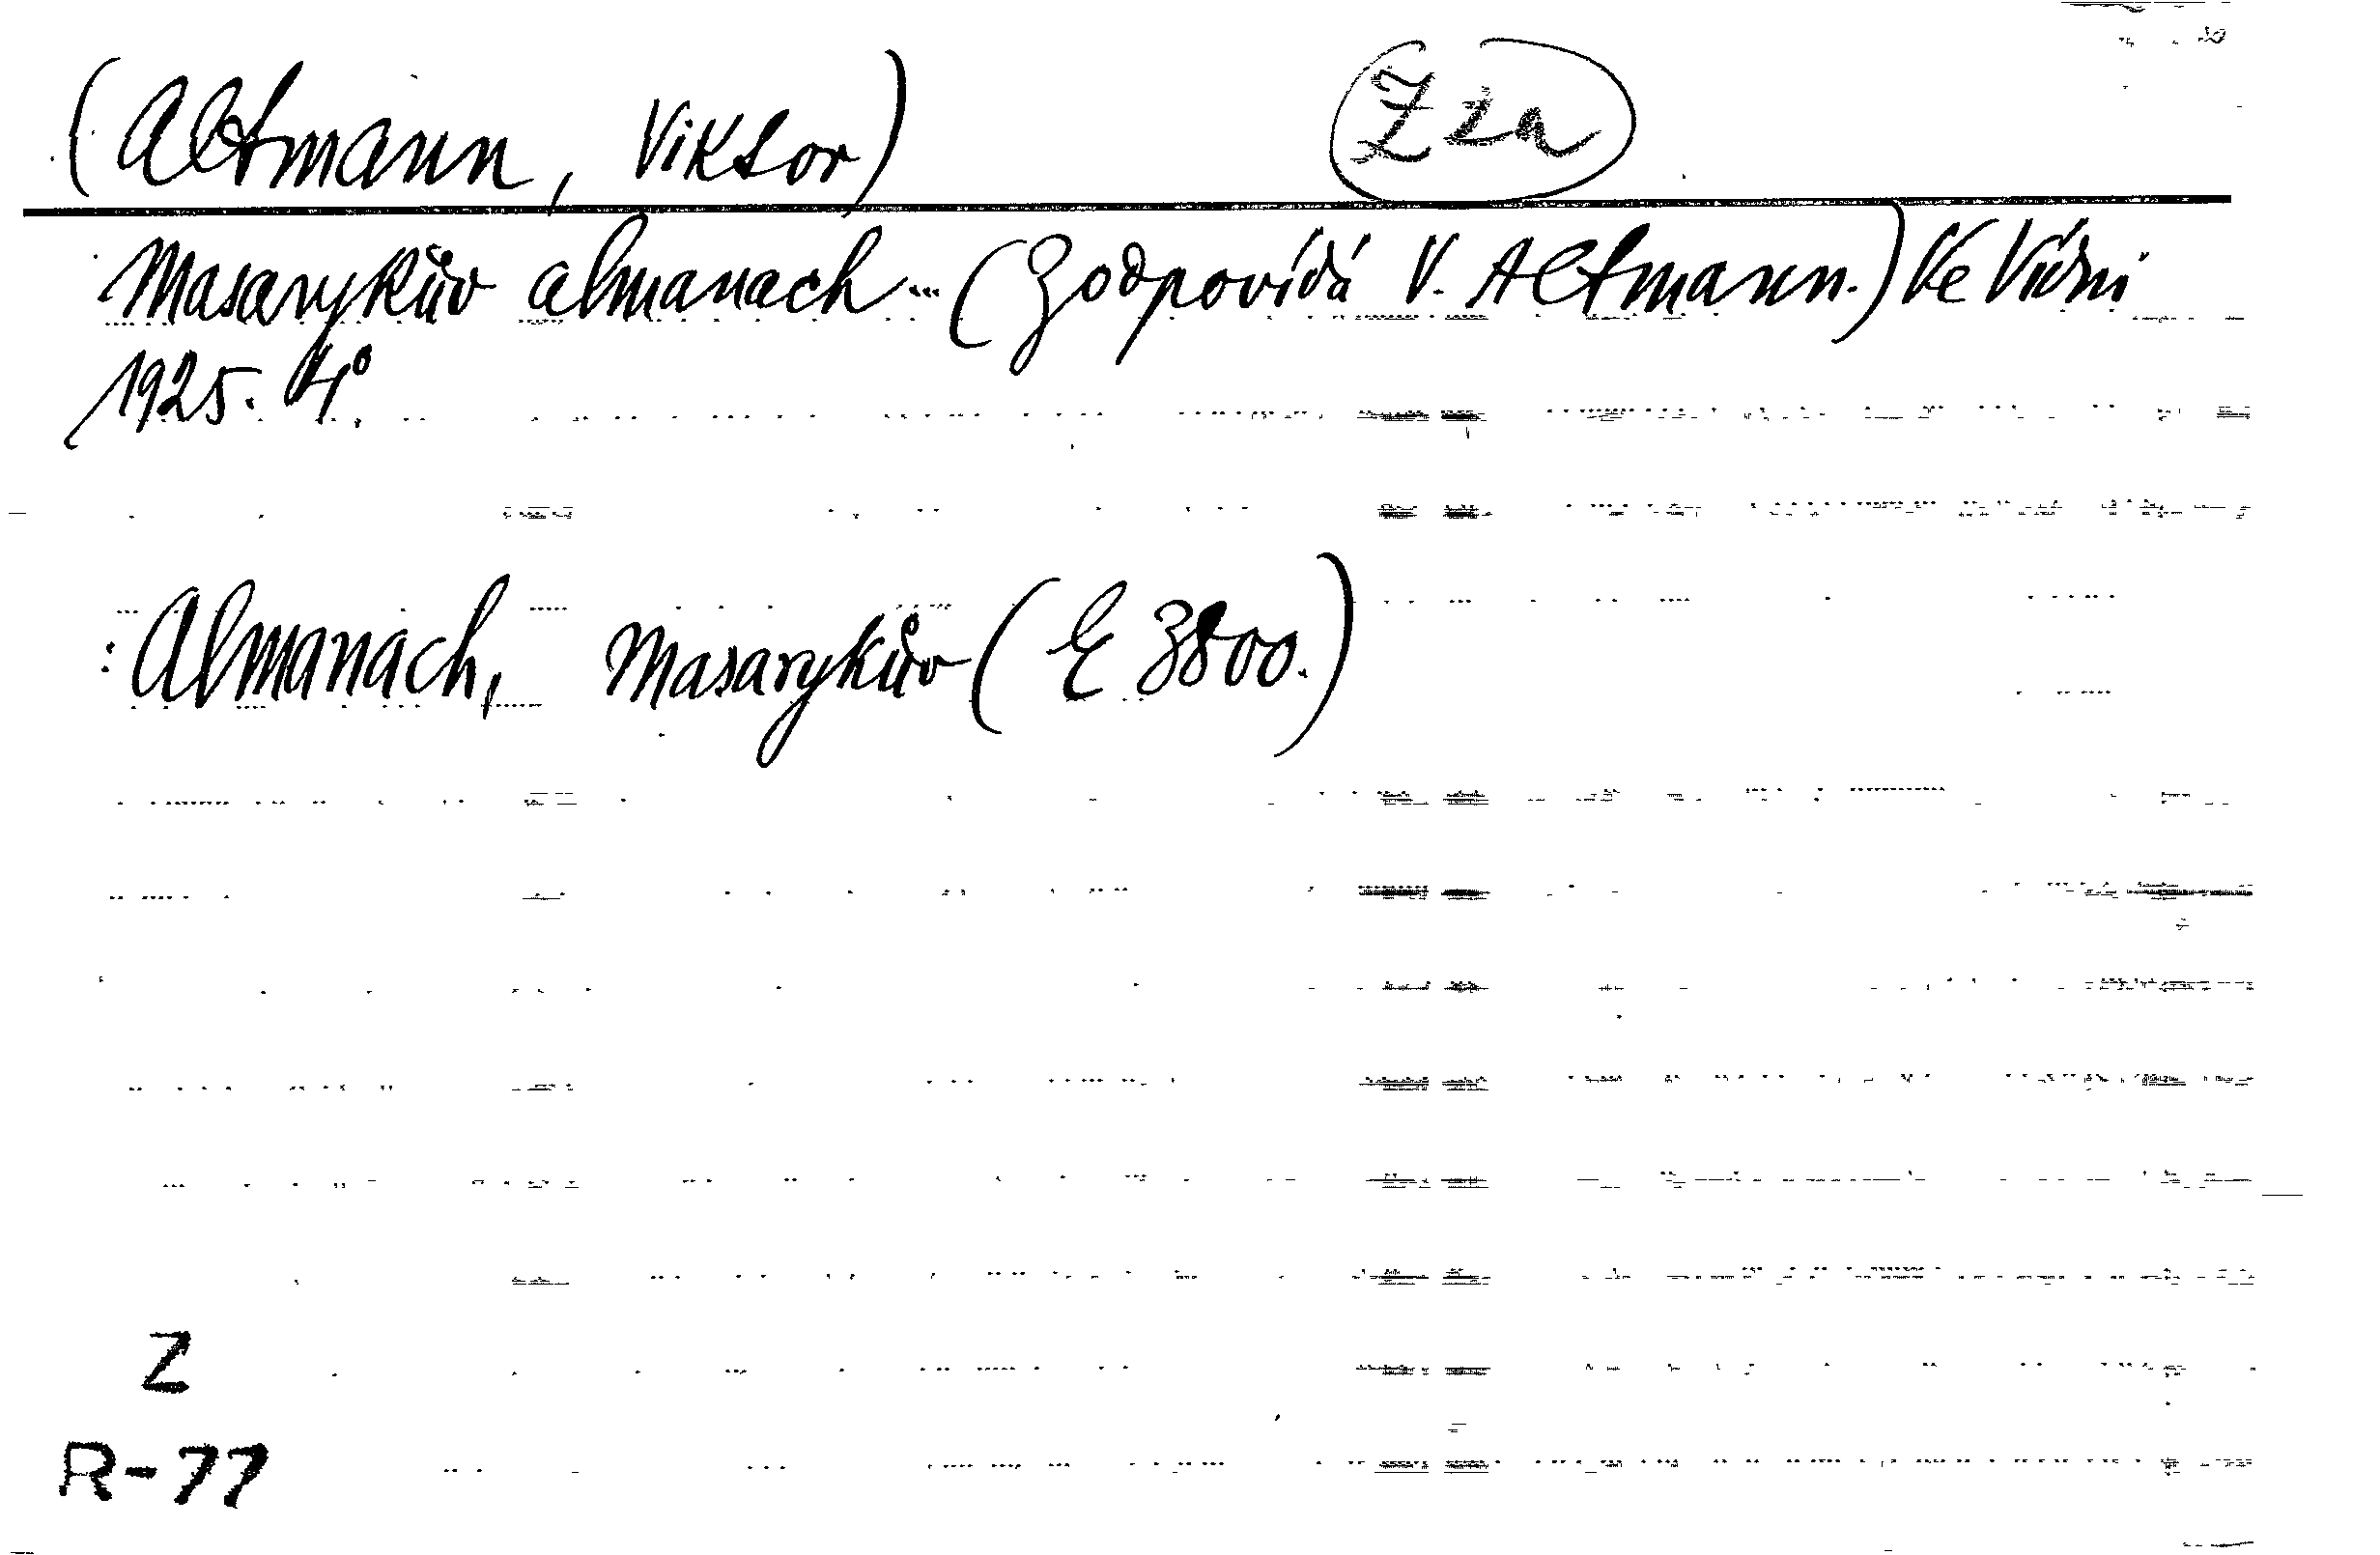 (Altmann, Viktor) Zza
Masarykův almanach... (Zodpovídá V. Altmann.) Ve Vídni
1925. 4°
Almanach, Masarykův (E 3800.)
Z
R-77